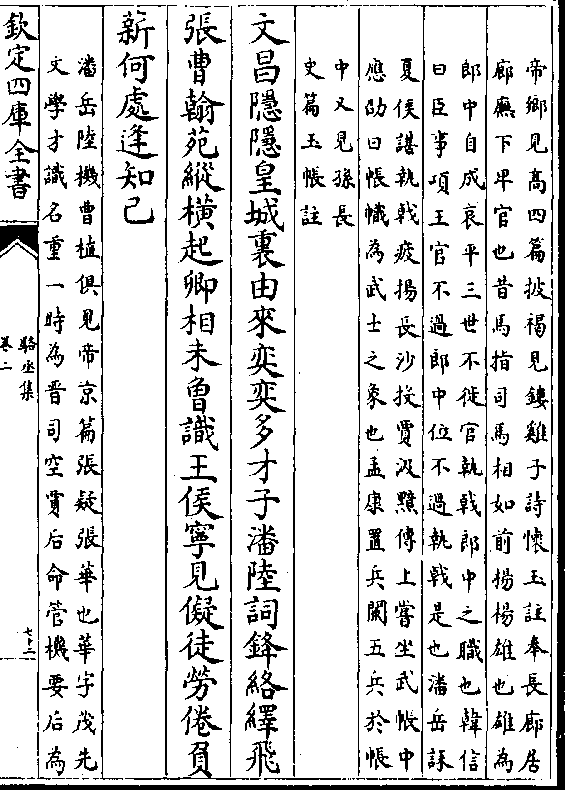 帝鄉見高四篇披褐見鏤雞子詩懷玉註奉長廊居
廊廡下卑官也昔馬指司馬相如前楊楊雄也雄為
郎中自成哀平三世不徙官執戟郎中之職也韓信
曰臣事項王官不過郎中位不過執戟是也潘岳誄
夏侯諶執戟疲揚長沙投賈汲黯傳上嘗坐武帳中
應劭曰帳幟為武士之象也孟康置兵闌五兵於帳
中又見孫長
史篇玉帳註
文昌隱隱皇城裏由來奕奕多才子潘陸詞鋒絡繹飛
張曹翰苑縱橫起卿相未曾識王侯寧見儗徒勞倦負
薪何處逢知己
潘岳陸機曹植俱見帝京篇張疑張華也華字茂先
文學才識名重一時為晉司空賈后命管機要后為
欽定四庫全書
駱丞集
卷二
七十二